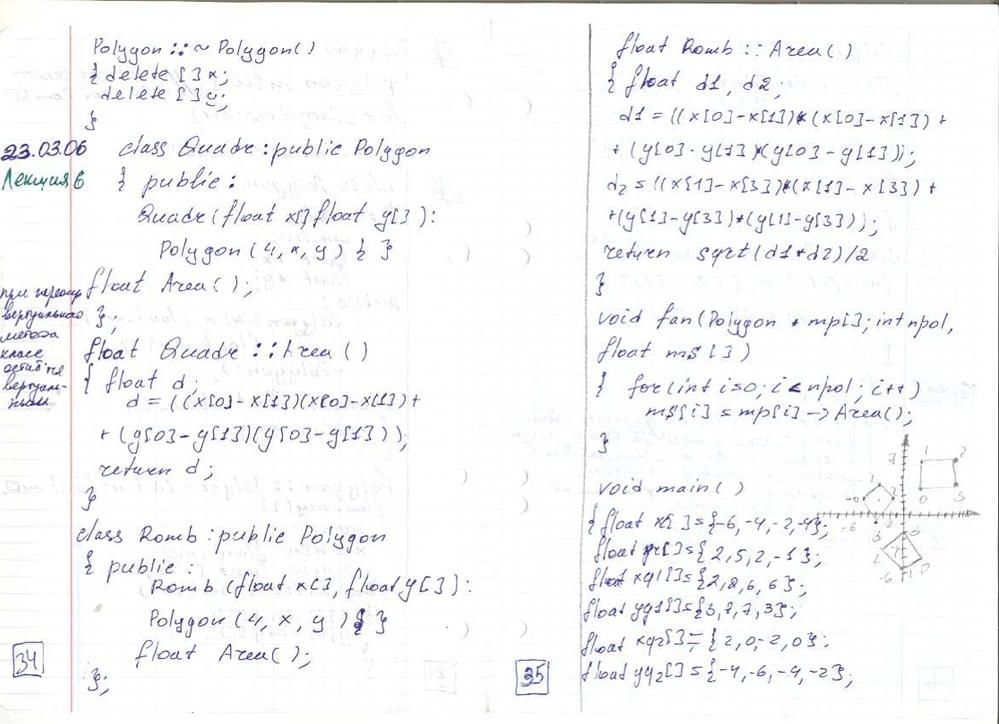 Polygon :: ~ Polygon()
{ delete [] x;
delete [] y;
}
23.03.06 class Quadr : public Polygon
Лекция 6 { public :
Quadr (float x[], float y[]) :
Polygon (4, x, y) { }
float Area();
};
float Quadr :: Area ()
{ float d;
d = ((x[0]-x[1])(x[0]-x[1])+
+ (y[0]-y[1])(y[0]-y[1]));
return d;
}
class Romb : public Polygon
{ public :
Romb (float x[], float y[]) :
Polygon (4, x, y) { }
float Area();
};
виртуального
метода
классе
34
float Romb :: Area()
{ float d1, d2;
d1 = ((x[0]-x[1])*(x[0]-x[1])+
+ (y[0]-y[1])*(y[0]-y[1]));
d2 = ((x[1]-x[3])*(x[1]-x[3])+
+(y[1]-y[3])*(y[1]-y[3]));
return sqrt(d1*d2)/2
}
void fan(Polygon * mp[]; int npol,
float ms[])
{ for(int i=0; i<npol; i++)
ms[i] = mp[i] -> Area();
}
void main()
{ float x[] = {-6, -4, -2, -4};
float [] = { 2, 5, 2, -1};
float xq1[] = {2, 2, 6, 6};
float yq1[] = {3, 7, 7, 3};
float xq2[] = {2, 0, -2, 0};
float yq2[] = {-4, -6, -4, -2};
35